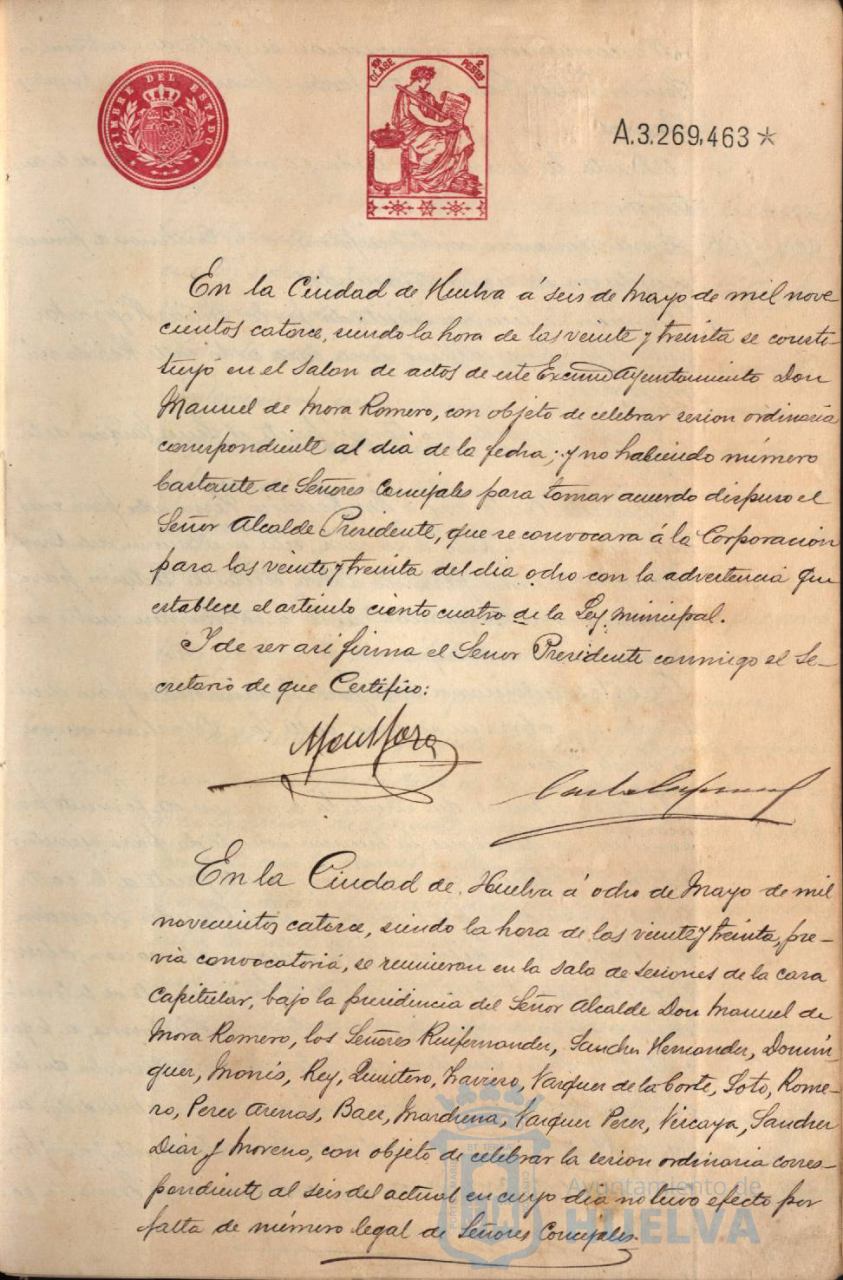 TIMBRE DEL ESTADO
CLASE
2
PESTAS
A.3.269,463*
En la Ciudad de Huelva á seis de Mayo de mil nove
cientos catorce, siendo la hora de las veinte y treinta se consti-
tuyó en el Salon de actos de este Excmo Ayuntamiento Don
Manuel de Mora Romero, con objeto de celebrar sesion ordinaria
correspondiente al dia de la fecha; y no habiendo número
bastante de Señores Concejales para tomar acuerdo dispuso el
Señor Alcalde Presidente, que se convocara á la Corporación
para las veinte y treinta del dia ocho con la advertencia que
establece el articulo ciento cuatro de la Ley Municipal.
Y de ser asi firma el Señor Presidente conmigo el Se-
cretario de que Certifico:
En la Ciudad de Huelva á ocho de Mayo de mil
novecientos catorce, siendo la hora de las veinte y treinta, pre-
via convocatoria, se reunieron en la sala de sesiones de la casa
Capitular, bajo la presidencia del Señor Alcalde Don Manuel de
Mora Romero, los Señores Ruifernandez, Sanchez Hernandez, Domin-
guez, Monis, Rey, Quintero, Traviero, Vazquez de la Corte, Soto, Rome-
ro, Perez Arenas, Baez, Marchena, Vazquez Perez, Vizcaya, Sanchez
Diaz y Moreno, con objeto de celebrar la sesion ordinaria corres-
pondiente al seis del actual en cuyo dia no tuvo efecto por
falta de número legal de Señores Concejales.
Ayuntamiento de
HUELVA